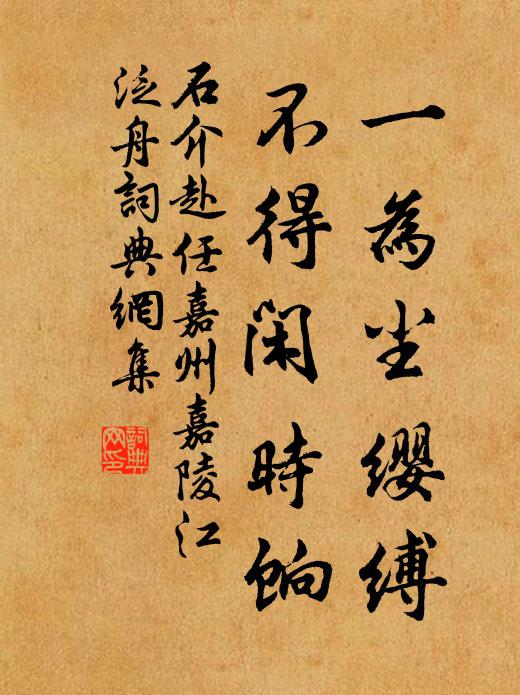 一為尘纓縛
不得閑時餉
石介赴任嘉州嘉陵江
泛舟詞典網集
詞典
网印